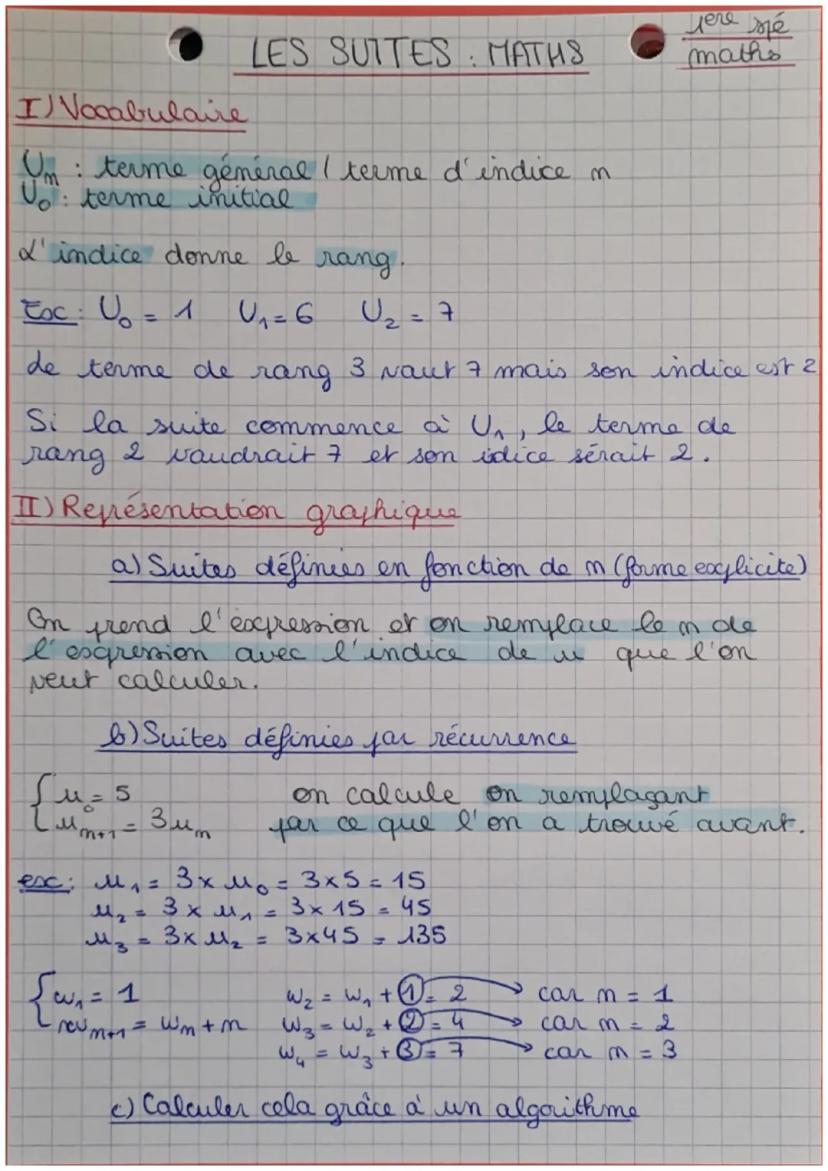 1ere spé
LES SUITES : MATHS
maths
I) Vocabulaire
Un : terme général / terme d'indice n
U0 : terme initial
L'indice donne le rang.
Ex : U0 = 1 U1 = 6 U2 = 7
Le terme de rang 3 vaut 7 mais son indice est 2
Si la suite commence à U1, le terme de
rang 2 vaudrait 7 et son idice sérait 2.
II) Représentation graphique
a) Suites définies en fonction de n (forme explicite)
On prend l'expression et on remplace le n de
l'expression avec l'indice de u que l'on
veut calculer.
b) Suites définies par récurrence
{ u0 = 5 on calcule en remplaçant
un+1 = 3un par ce que l'on a trouvé avant.
ex : u1 = 3 x u0 = 3 x 5 = 15
u2 = 3 x u1 = 3 x 15 = 45
u3 = 3 x u2 = 3 x 45 = 135
{ w1 = 1 w2 = w1 + 1 = 2 → car n = 1
wn+1 = wn + n w3 = w2 + 2 = 4 → car n = 2
w4 = w3 + 3 = 7 → car n = 3
c) Calculer cela grâce à un algorithme